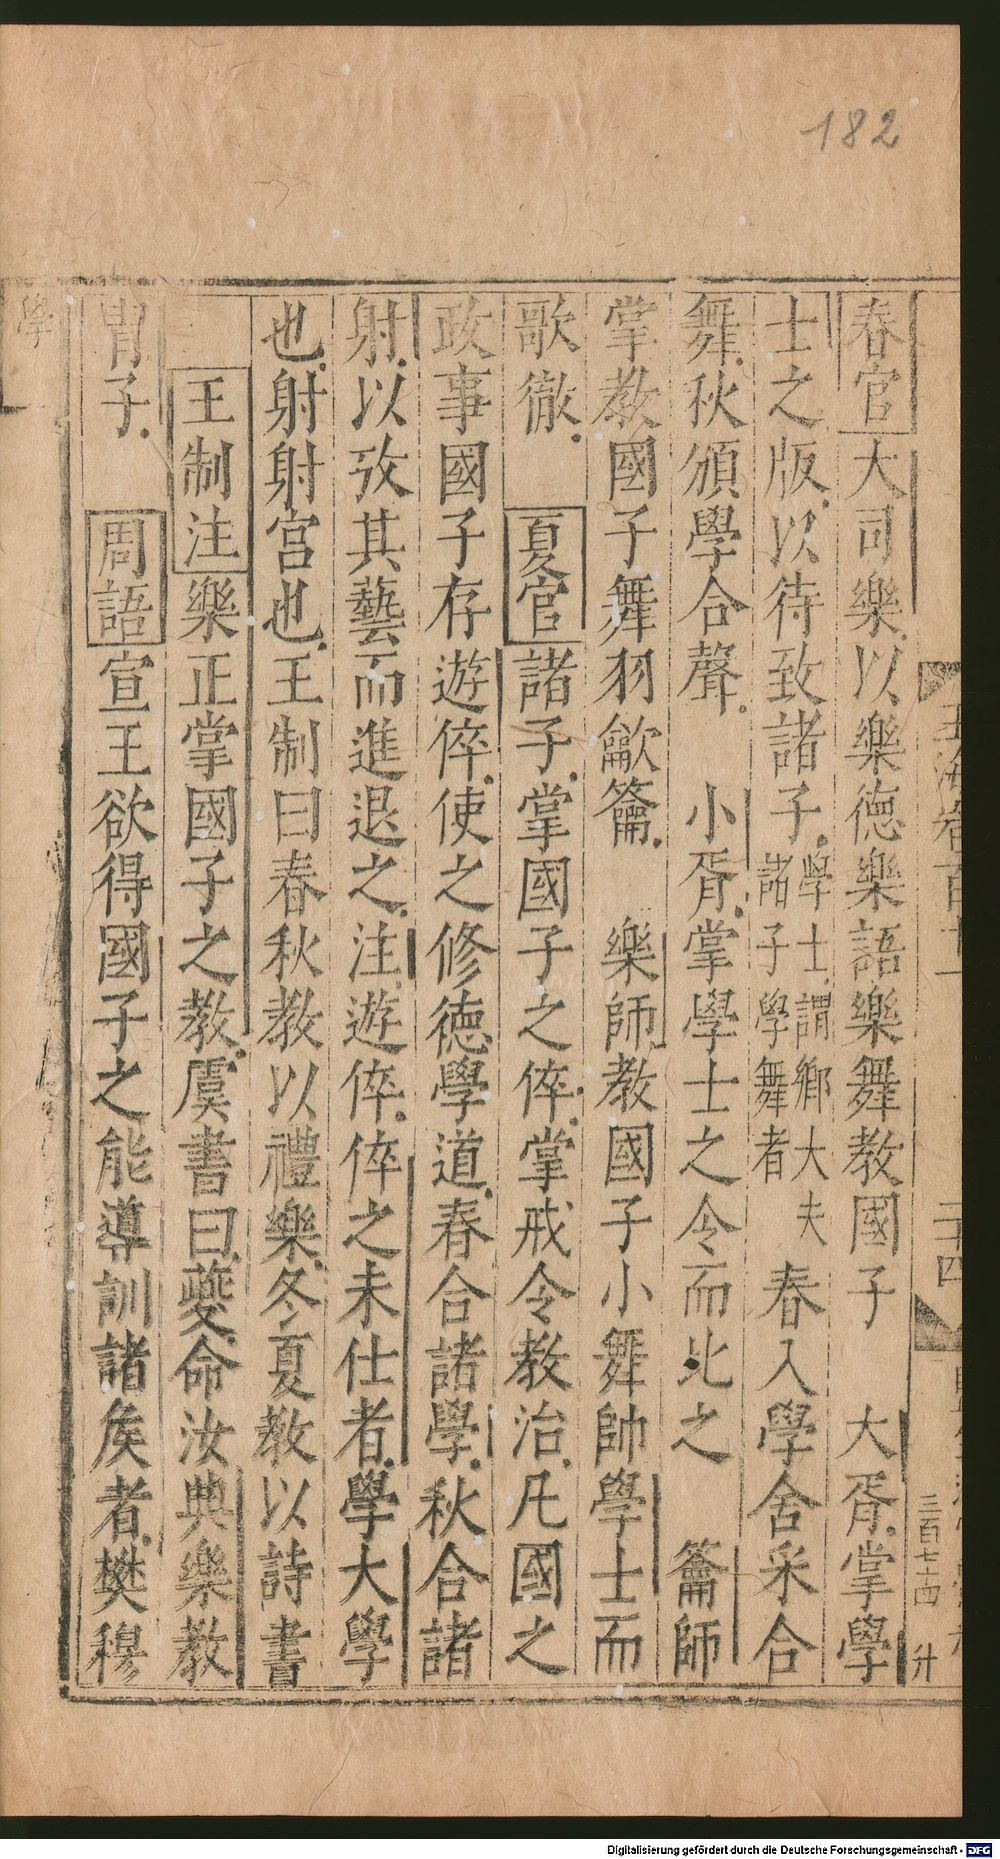 182
玉海卷百十一
二十四
三百七十四
升
春官大司樂以樂德樂語樂舞教國子　大胥掌學
士之版以待致諸子學士謂鄉大夫諸子學舞者　春入學舍采合
舞秋頒學合聲　小胥掌學士之令而比之　籥師
掌教國子舞羽龡籥　樂師教國子小舞帥學士而
歌徹　夏官諸子掌國子之倅掌戒令教治凡國之
政事國子存遊倅使之修德學道春合諸學秋合諸
射以攷其藝而進退之注遊倅倅之未仕者學大學
也射射宮也王制曰春秋教以禮樂冬夏教以詩書
王制注樂正掌國子之教虞書曰夔命汝典樂教
胄子　周語宣王欲得國子之能導訓諸侯者樊穆
學
Digitalisierung gefördert durch die Deutsche Forschungsgemeinschaft - DFG